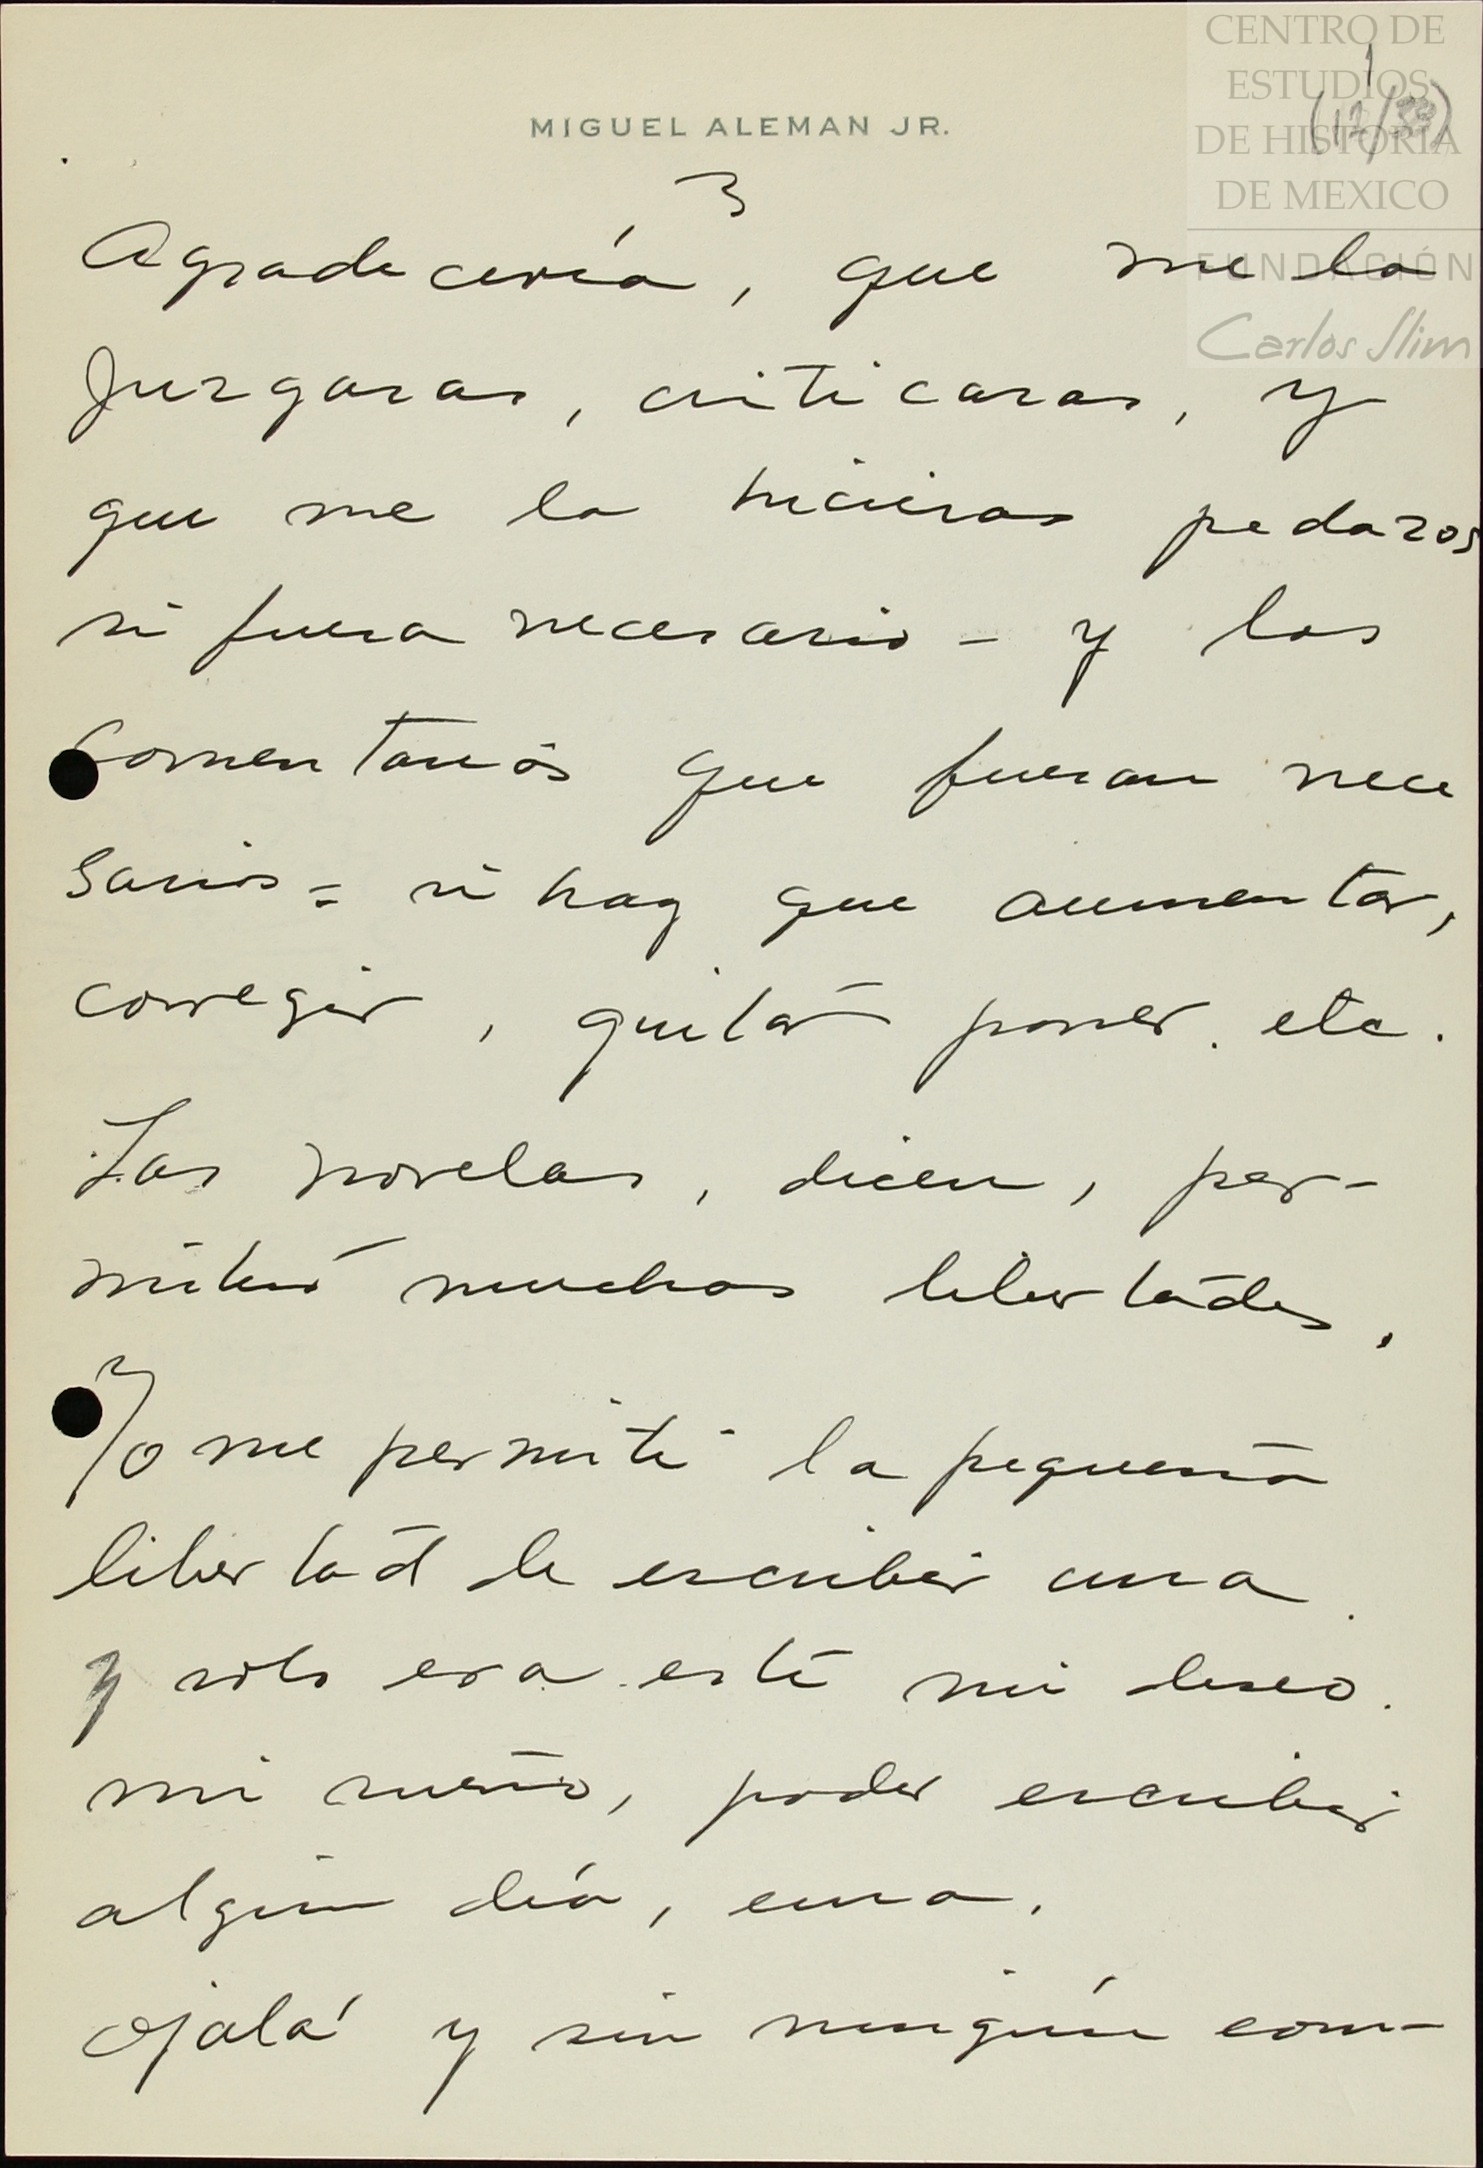 CENTRO DE
ESTUDIOS
DE HISTORIA
DE MEXICO
FUNDACIÓN
Carlos Slim
1
(12/33)
MIGUEL ALEMAN JR.
3
Agradecería, que me la
juzgaras, criticaras, y
que me la hicieras pedazos
si fuera necesario - y los
comentarios que fueran nece
sarios = si hay que aumentar,
corregir, quitar poner. etc.
Las novelas, dicen, per-
miten muchas libertades.
Yo me permití la pequeña
libertad de escribir una.
y solo era esté mi deseo.
mi sueño, poder escribir
algún día, una.
Ojalá y sin ningún com-